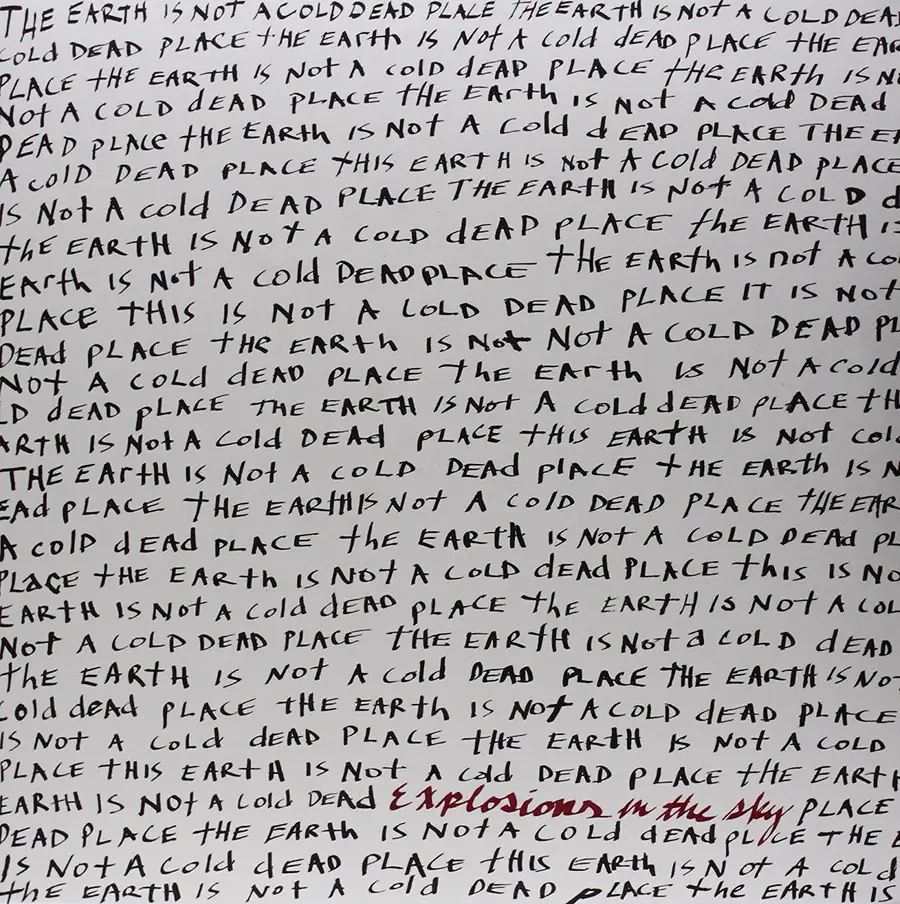 THE EARTH IS NOT A COLD DEAD PLACE THE EARTH IS NOT A COLD DEA
COLD DEAD PLACE tHE EARth IS NOt A COld dEAD PLACE tHE EAR
PLACE tHE EARtH IS NOt A COlD dEAD PLACE tHE EARth IS N
NOt A COLD dEAD PLACE tHE EArth IS Not A Cold DEAd
DEAD pLAce tHE EARth IS NOt A COld d EAD PLACE THE E
A COlD DEAD PLACE tHIS EARtH IS Not A Cold DEAD pLACE
IS Not A cold DEAD PLACE THE EARtH IS NOt A COLD d
thE EARtH IS NOT A COLD dEAD PLACE thE EARtH I
EArth IS Not A Cold DEAD PLACE tHE EARth IS not A CO
PLACE THIS IS Not A COLD DEAD PLACE IT IS Not
DEAd PLACE tHe EARth IS Not Not A COLD DEAD PL
NOt A COLd dEAD PLACE the EArth IS NOt A Cold
LD dEAD pLACE THE EARTH IS Not A Cold dEAD pLACE tH
ARTH IS Not A Cold DEAd pLACE tHIS EARtH IS Not Col
THE EArtH IS Not A COLD DEAd plACE tHE EARth IS N
EAd pLACE tHE EARtH IS Not A COlD DEAD PLACE tHE EAR
A COlD dEAd pLACE thE EARtH IS NOt A COLD DEAd pL
PLACE tHE EARth IS NOt A COLD dEAd PLACE thIS IS NO
EARTH IS NOt A Cold dEAD pLACE the EARtH IS NOt A COL
NOt A COLD DEAD PLACE tHE EARtH IS Not a COLD dEAD
thE EARtH IS NOt A Cold DEAD pLACE THE EARtH IS NO
Cold deAd pLACE tHE EARth IS NOt A COLD dEAD pLACE
IS NOt A Cold dEAD PLACE tHE EARtH IS NOt A COLD
PLACE THIS EARtH IS Not A Cold DEAD PLACE tHE EARt
EARtH IS NOt A Cold DEAd Explosions in the sky PLACE
DEAD PLACE tHE EARth IS NOt A COLd dEAd pLACE tHE E
IS NOt A Cold dEAD PLACE tHIS EARth IS Not A COLd
thE EARtH IS Not A Cold DEAD pLACE the EARtH IS